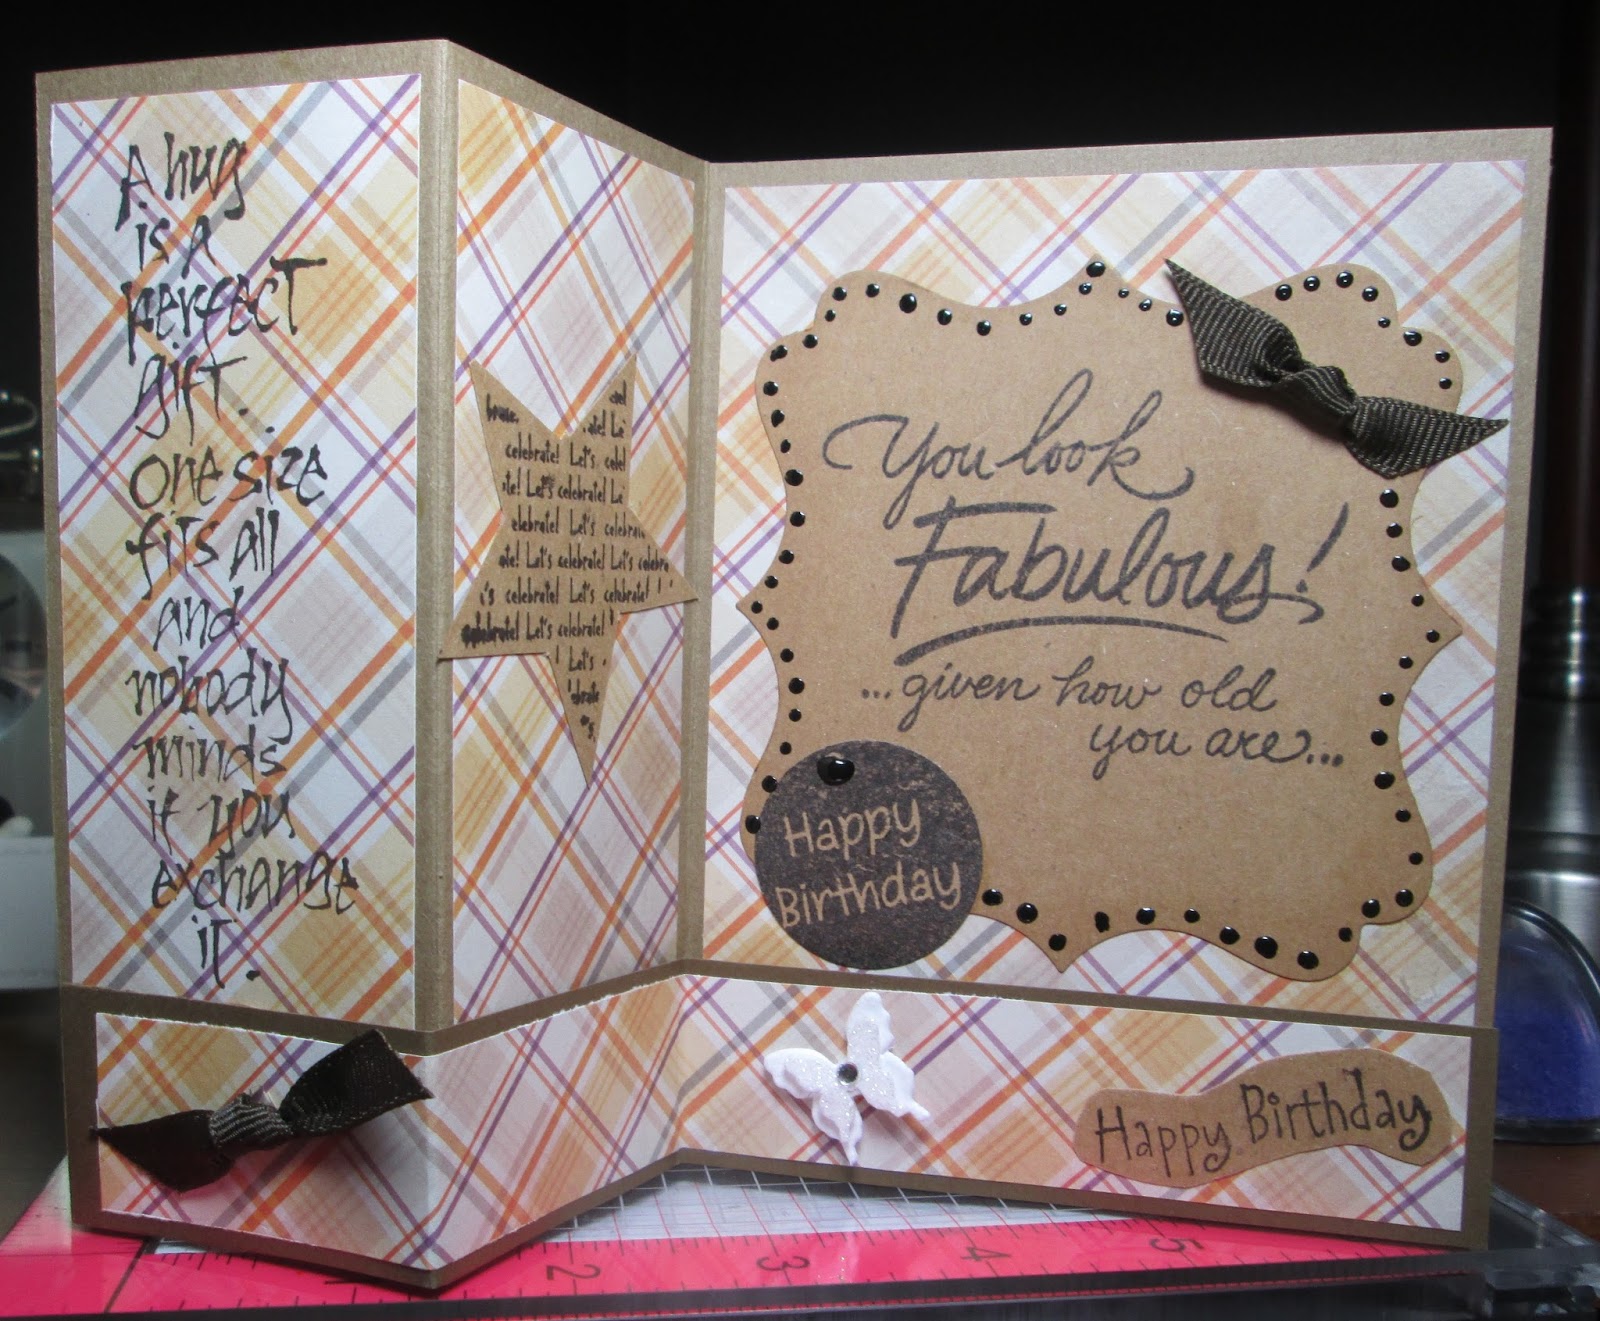 A hug
is a
perfect
gift.
one size
fits all
and
nobody
minds
if you
exchange
it.
celebrate! Let's
Let's celebrate!
celebrate! Let's
celebrate! Let's celebrate! Let's
's celebrate! Let's celebrate!
celebrate! Let's celebrate!
Let's
You look
Fabulous!
...given how old
you are...
Happy
Birthday
Happy Birthday
2 3 4 5